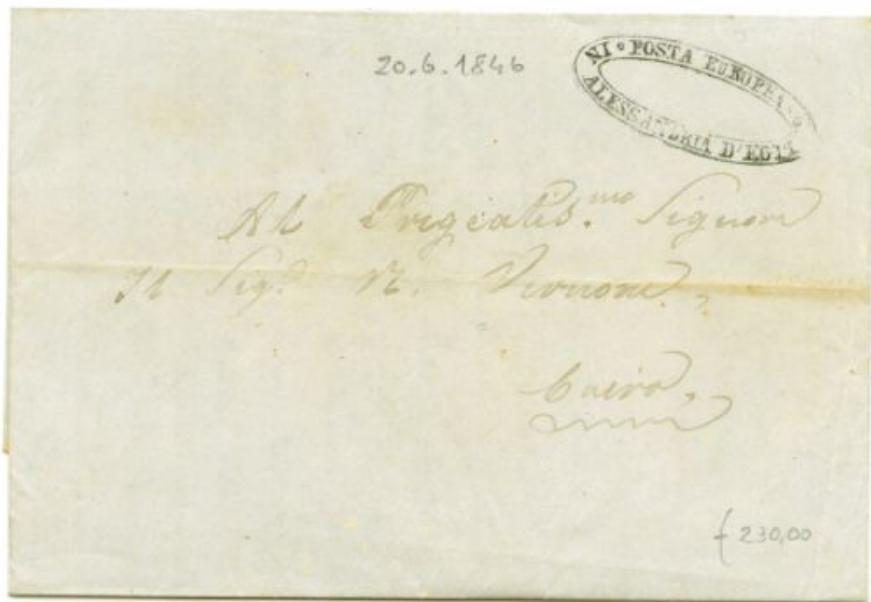 20.6.1846
NI * POSTA EUROPEA
ALESSANDRIA D'EGI
Al Pregiatis.mo Signore
Il Sig.r N.
Cairo,
230,00